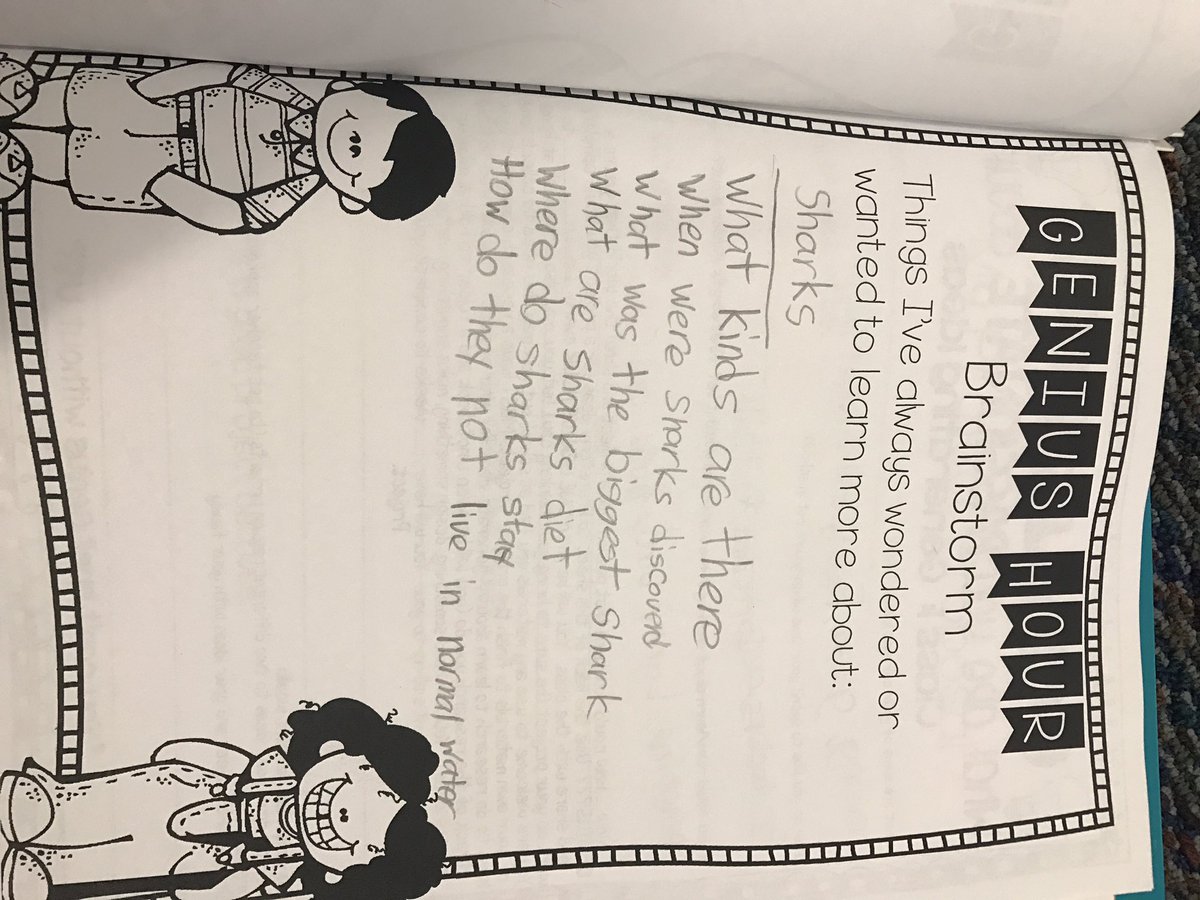 GENIUS HOUR
Brainstorm
Things I've always wondered or
wanted to learn more about:
Sharks
What kinds are there
When were sharks discoverd
What was the biggest shark
What are sharks diet
Where do sharks stay
How do they not live in normal water